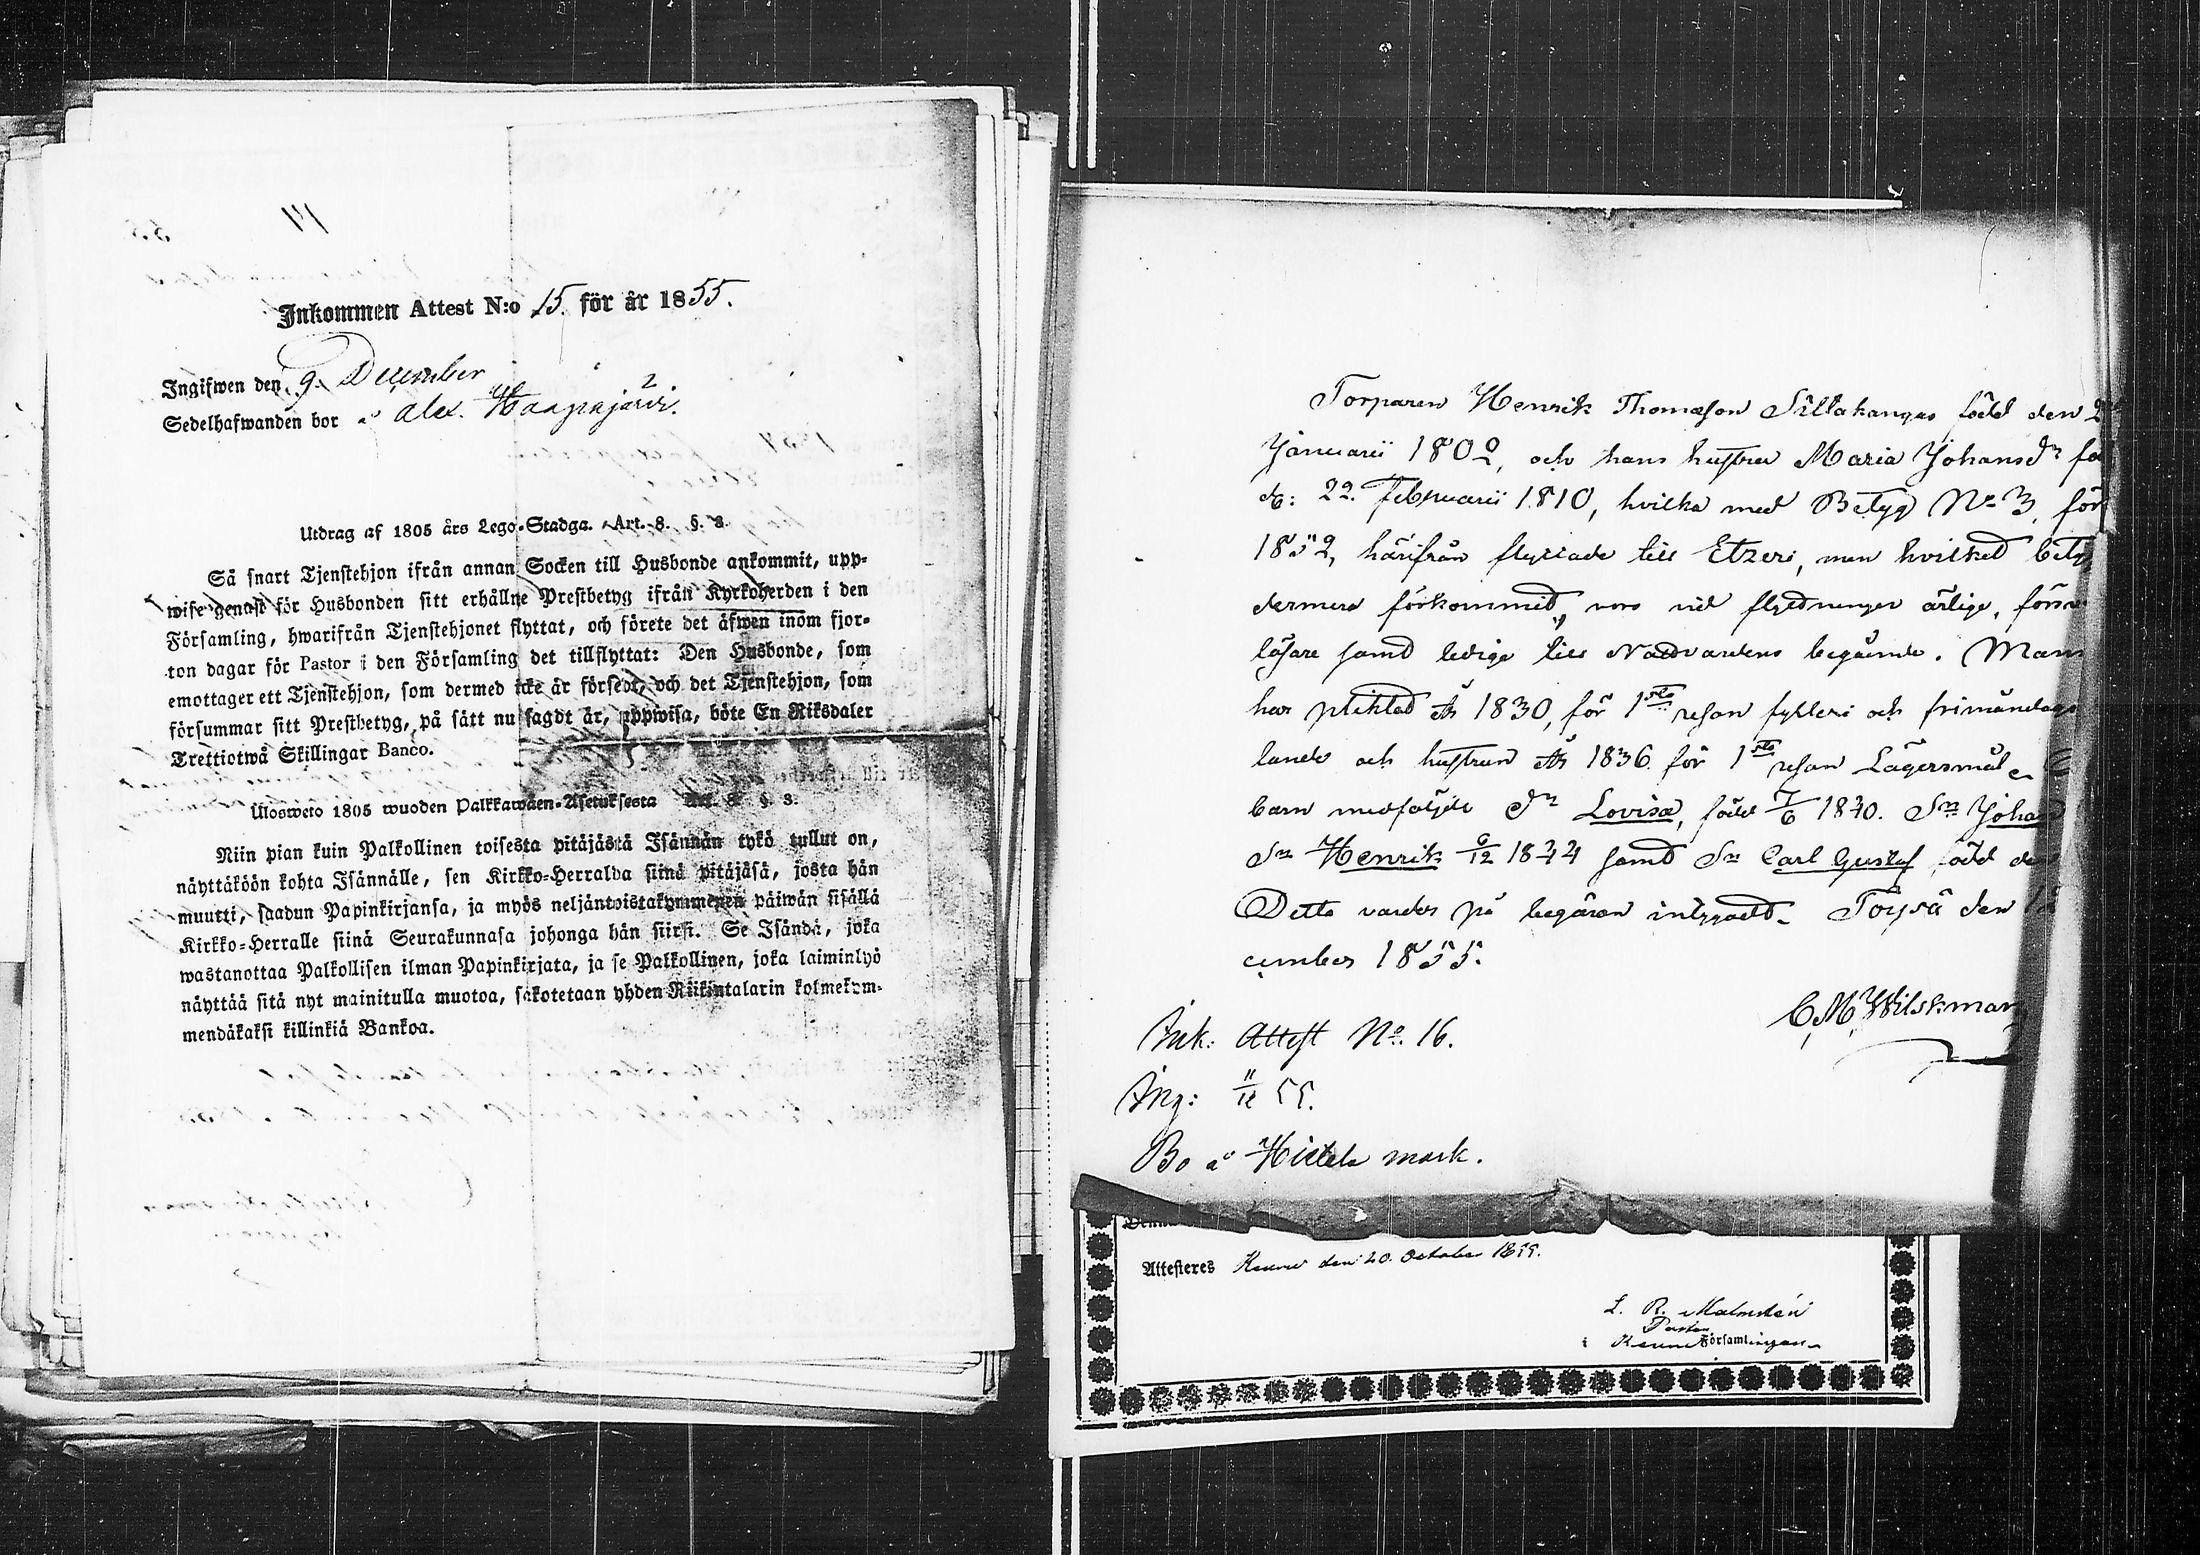 Inkommen Attest N:o 15. för år 1855.
Ingifwen den 9. December
Sedelhafwanden bor å alex. Haapajärvi. 2
Utdrag af 1805 års Lego-Stadga. Art. 8. §. 3.
Så snart Tjenstehjon ifrån annan Socken till Husbonde ankommit, upp-
wise genast för Husbonden sitt erhållne Prestbetyg ifrån Kyrkoherden i den
Församling, hwarifrån Tjenstehjonet flyttat, och förete det äfwen inom fjor-
ton dagar för Pastor i den Församling det tillflyttat: Den Husbonde, som
emottager ett Tjenstehjon, som dermed icke är försedt, och det Tjenstehjon, som
försummar sitt Prestbetyg, på sätt nu sagdt är, uppwisa, böte En Riksdaler
Trettiotwå Skillingar Banco.
Ulosweto 1805 wuoden Palkkawäen-Asetuksesta Art. 8. §. 3.
Niin pian kuin Palkollinen toisesta pitäjästä Isännän tykö tullut on,
näyttäköön kohta Isännälle, sen Kirkko-Herralda siinä pitäjäsä, josta hän
muutti, saadun Papinkirjansa, ja myös neljäntoistakymmenen päiwän sisällä
Kirkko-Herralle siinä Seurakunnasa johonga hän siirsi. Se Isändä, joka
wastanottaa Palkollisen ilman Papinkirjata, ja se Palkollinen, joka laiminlyö
näyttää sitä nyt mainitulla muotoa, sakotetaan yhden Riikintalarin kolmekym-
mendäkaksi killinkiä Bankoa.
Torparen Henrik Thomasson Sillakangas född den 2
Januarii 1802, och hans hustru Maria Johansdr fö
d: 22. Februarii 1810, hvilka med Betyg No 3, för
1852, härifrån flyttade till Etzeri, men hvilket bety
dermera förkommit, voro vid flyttningen ärlige, försv
läsare samt ledige till Nattvardens begående. Man
har pliktat År 1830, för 1sta resan fylleri och frimåndags
lande och hustrun År 1836 för 1sta resan Lägersmål.
barn medföljde Dr Lovisa, född 7/6 1840. Sn Johan
Sn Henrik 6/12 1844 samt Sn Carl Gustaf född den
Detta varder på begäran intygadt. Töysä den 1
cember 1855.
C. M. Wilskman
Ink: Attest No. 16.
Ing: 11/12 55.
Bo å Hietala mark.
Attesteres Keuru den 20. October 1855.
L. R. Malmstén
Pastor
i Keuru Församlingen